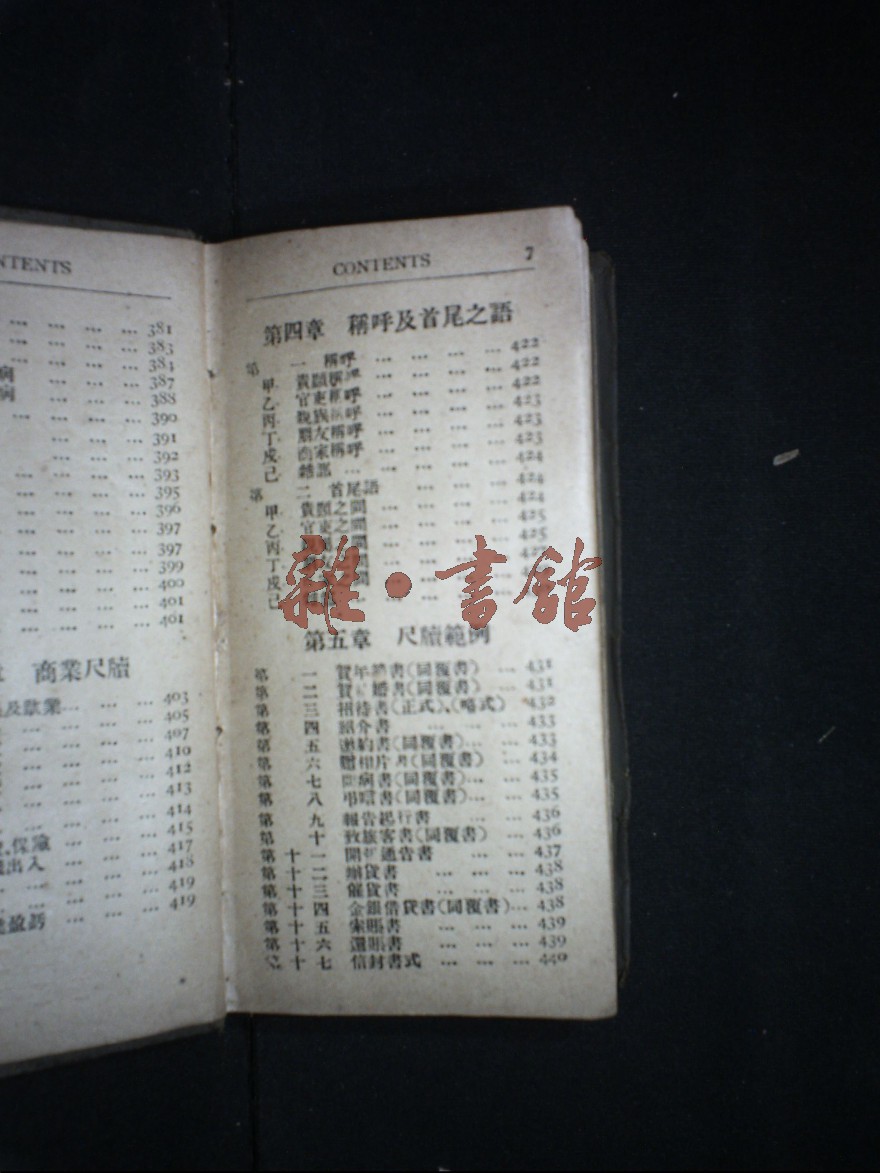 NTENTS
... ... ... ... 381
... ... ... ... 383
... ... ... ... 384
病 ... ... ... 387
病 ... ... ... 388
... ... ... ... 390
... ... 391
... ... ... 392
... ... ... ... 393
... ... ... ... 395
... ... ... ... 396
... ... ... ... 397
... ... ... ... 397
... ... ... ... 399
... ... ... ... 400
... ... ... ... 401
... ... ... ... 401
商業尺牘
及歇業... ... ... 403
... ... ... ... 405
... ... ... ... 407
... ... ... ... 410
... ... ... ... 412
... ... ... ... 413
... ... ... ... 414
... ... ... ... 415
保險 ... ... ... 417
出入 ... ... ... 418
... ... ... ... 419
盈虧 ... ... ... 419
CONTENTS 7
第四章 稱呼及首尾之語
第一 稱呼 ... ... ... ... 422
甲 貴顯稱呼 ... ... ... ... 422
乙 官吏稱呼 ... ... ... ... 422
丙 親族稱呼 ... ... ... ... 423
丁 朋友稱呼 ... ... ... ... 423
戊 商家稱呼 ... ... ... ... 423
己 雜部 ... ... ... ... 424
第二 首尾語 ... ... ... 424
甲 貴顯之間 ... ... ... ... 424
乙 官吏之間 ... ... ... ... 425
丙 ... ... ... ... 425
丁
戊
己
雜·書館
第五章 尺牘範例
第一 賀年書(同覆書) ... 431
第二 賀婚書(同覆書) ... 431
第三 招待書(正式)、(略式) 432
第四 紹介書 ... ... ... 433
第五 邀約書(同覆書)... ... 433
第六 贈相片書(同覆書) ... 434
第七 問病書(同覆書)... ... 435
第八 弔唁書(同覆書)... ... 435
第九 報告起行書 ... ... 436
第十 致旅客書(同覆書) ... 436
第十一 通告書 ... ... 437
第十二 辦貨書 ... ... ... 438
第十三 催貨書 ... ... ... 438
第十四 金銀借貸書(同覆書)... 438
第十五 索賬書 ... ... ... 439
第十六 還賬書 ... ... ... 439
第十七 信封書式 ... ... ... 440